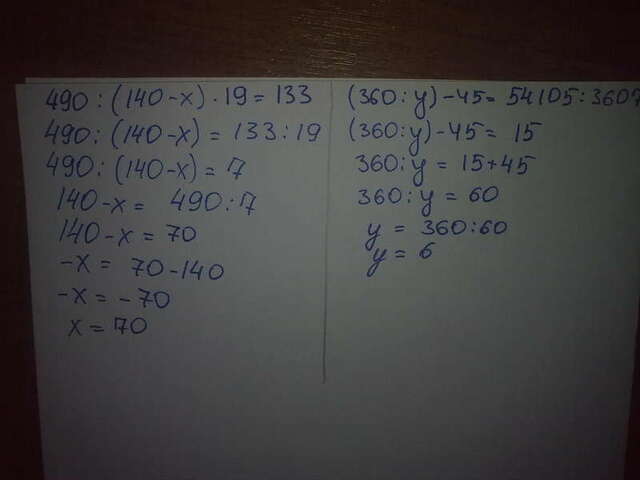 490 : (140 - x) · 19 = 133
490 : (140 - x) = 133 : 19
490 : (140 - x) = 7
140 - x = 490 : 7
140 - x = 70
- x = 70 - 140
- x = - 70
x = 70
(360 : y) - 45 = 54105 : 3607
(360 : y) - 45 = 15
360 : y = 15 + 45
360 : y = 60
y = 360 : 60
y = 6